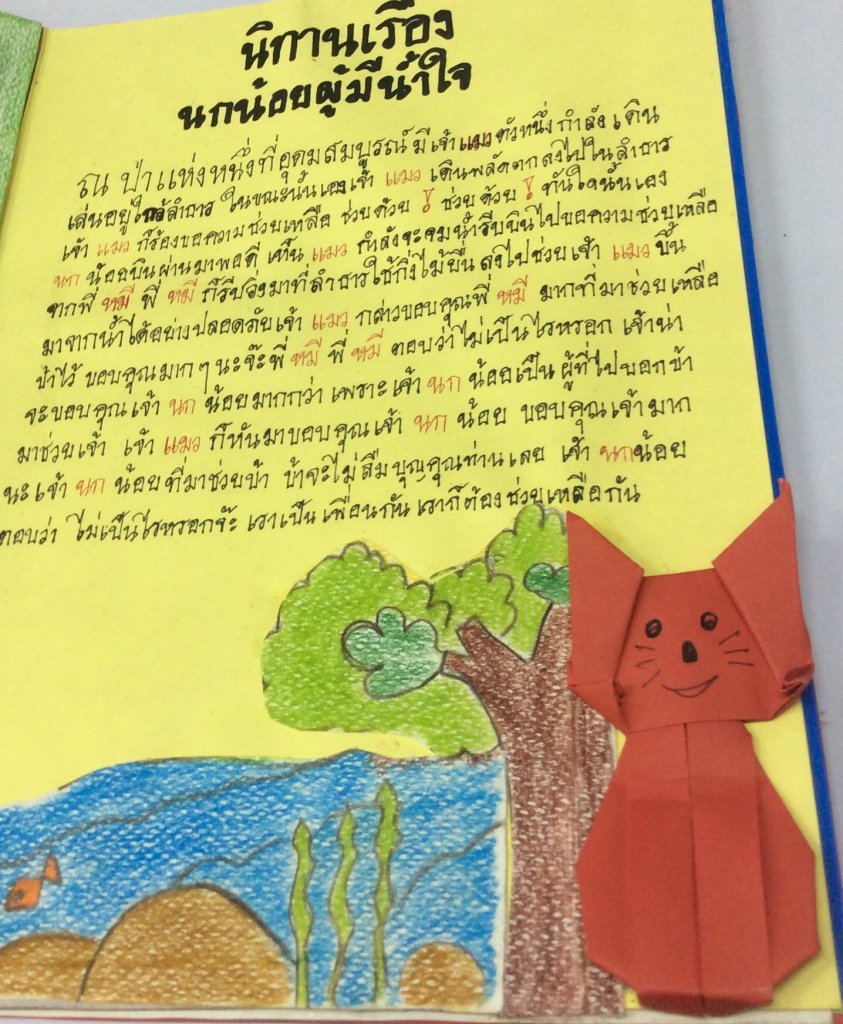 นิทานเรื่อง
นกน้อยผู้มีน้ำใจ
ณ ป่าแห่งหนึ่งที่อุดมสมบูรณ์ มีเจ้า แมว ตัวหนึ่ง กำลัง เดิน
เล่นอยู่ใกล้ลำธาร ในขณะนั้นเองเจ้า แมว เดินพลัดตกลงไปใน ลำธาร
เจ้า แมว ก็ร้องขอความช่วยเหลือ ช่วยด้วย ! ช่วยด้วย ! ทันใดนั้นเอง
นก น้อยบินผ่านมาพอดี เห็น แมว กำลังจะจมน้ำรีบบินไปขอความช่วยเหลือ
จากพี่ หมี พี่ หมี ก็รีบวิ่งมาที่ลำธารใช้กิ่งไม้ยื่นลงไปช่วย เจ้า แมว ขึ้น
มาจากน้ำได้อย่างปลอดภัยเจ้า แมว กล่าวขอบคุณพี่ หมี มากที่มาช่วยเหลือ
ข้าไว้ ขอบคุณมาก ๆ นะจ๊ะพี่ หมี พี่ หมี ตอบว่าไม่เป็นไรหรอก เจ้าน่า
จะขอบคุณเจ้า นก น้อยมากกว่า เพราะเจ้า นก น้อยเป็น ผู้ที่ไปบอกข้า
มาช่วยเจ้า เจ้า แมว ก็หันมาขอบคุณเจ้า นก น้อย ขอบคุณเจ้ามาก
นะเจ้า นก น้อยที่มาช่วยข้า ข้าจะไม่ลืม บุญคุณท่านเลย เจ้า นกน้อย
ตอบว่า ไม่เป็นไรหรอกจ๊ะ เราเป็น เพื่อนกัน เราก็ต้องช่วยเหลือกัน